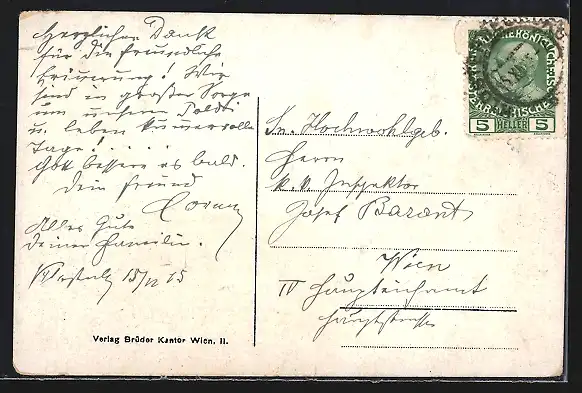 Herzlichen Dank
für die freundliche
Erinnerung! Wir
sind in großer Sorge
um unsern Poldi
u. leben kummervolle
Tage! . . . .
Gott bessere es bald.
Dein Freund
Alles Gute
Deiner Familie.
15/12 15
Verlag Brüder Kantor Wien, II.
Sr. Hochwohlgeb.
Herrn
k. k. Inspektor
Josef Barant
Wien
IV
5 HELLER 5